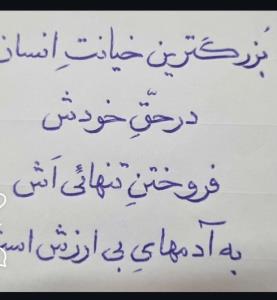 بُزرگترین خیانتِ اِنسان
در حقِّ خودش
فروختنِ تنهائی اَش
به آدمهایِ بی ارزش است